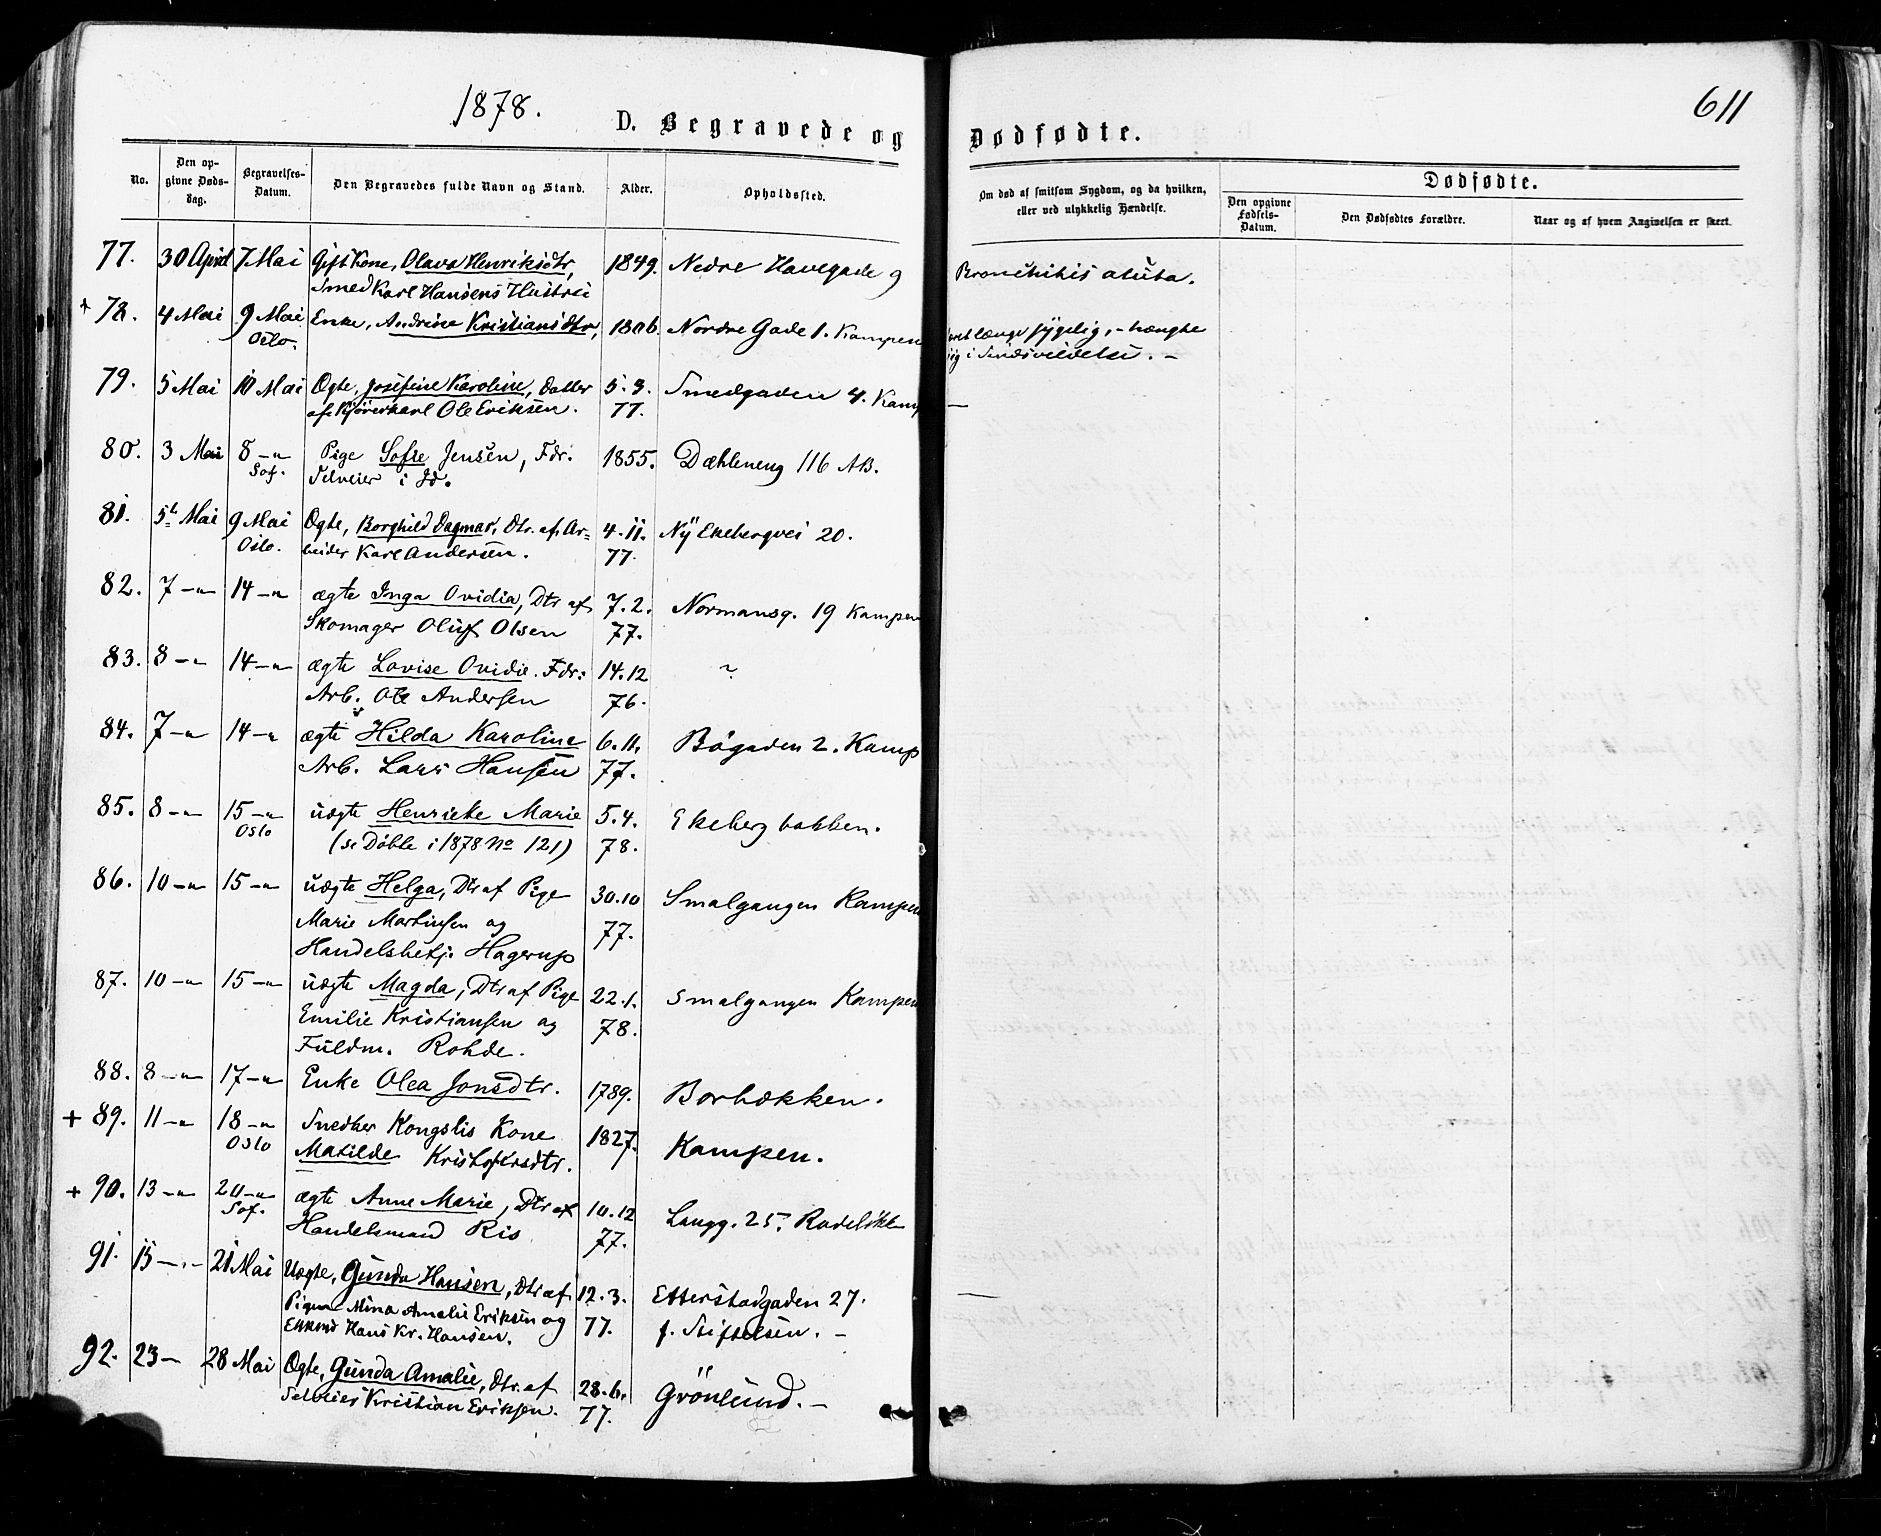 1878.
611
D. Begravede og Dødfødte.
No.
Den opgivne Døds-Dag.
Begravelses-Datum.
Den Begravedes fulde Navn og Stand.
Alder.
Opholdssted.
Om død af smitsom Sygdom, og da hvilken, eller ved ulykkelig Hændelse.
Dødfødte.
Den opgivne Fødsels-Datum.
Den Dødfødtes Forældre.
Naar og af hvem Angivelsen er skeet.
77. 30 April 7 Mai Gift Kone, Olava Henriksdtr, 1849. Nedre Havegade 9 Bronchitis acuta.
Smed Karl Hansens Hustru
78. 4 Mai 9 Mai Enke, Andrine Kristiansdtr, 1806. Nordre Gade 1. Kampen længe sygelig, - hængte
Oslo. sig i Sindsvildelse. -
79. 5 Mai 10 Mai Ægte, Josefine Karoline, Datter 5.3. Smedgaden 4. Kamp —
af Kjørerkarl Ole Eriksen. 77.
80. 3 Mai 8 -"- Pige Sofie Jensen, Fdr. 1855. Dæhleneng 116 AB.
Sof. Selveier i
81. 5 Mai 9 Mai Ægte, Borghild Dagmar, Dtr. af Ar= 4.11. Ny Ekebergvei 20.
Oslo. beider Karl Andersen. 77.
82. 7 -"- 14 -"- ægte Inga Ovidia, Dtr af 7.2. Normansg. 19 Kampen
Skomager Oluf Olsen 77.
83. 8 -"- 14 -"- ægte Lovise Ovidie. Fdr: 14.12 ~
Arb. Ole Andersen 76.
84. 7 -"- 14 -"- ægte Hilda Karoline 6.11. Bøgaden 2. Kamp
Arb. Lars Hansen 77.
85. 8 -"- 15 -"- uægte Henrieke Marie 5.4. Ekebergbakken.
Oslo (se Døbte i 1878 No 121) 78.
86. 10 -"- 15 -"- uægte Helga, Dtr af Pige 30.10 Smalgangen Kampen
Marie Martinsen og 77.
Handelsbetj. Hagerup
87. 10 -"- 15 -"- uægte Magda, Dtr af Pige 22.1. Smalgangen Kampen
Emilie Kristiansen og 78.
Fuldm. Rohde.
88. 8 -"- 17 -"- Enke Olea Jonsdtr. 1789. Borbækken.
+ 89. 11 -"- 18 -"- Snedker Kongslis Kone 1827. Kampen.
Oslo Matilde Kristofersdtr.
+ 90. 13 -"- 20 -"- ægte Anne Marie, Dtr af 10.12 Langg. 25. Rodeløkk
Sof. Handelsmand Ris 77.
91. 15 -"- 21 Mai Uægte, Gunda Hansen, Dtr af 12.3. Etterstadgaden 27. —
Pigen Mina Amalie Eriksen og 77. f. Stiftelsen. -
Hans Kr. Hansen.
92. 23 - 28 Mai Ægte, Gunda Amalie, Dtr. af 28.6. Grönlund. -
Selveier Kristian Eriksen. 77.